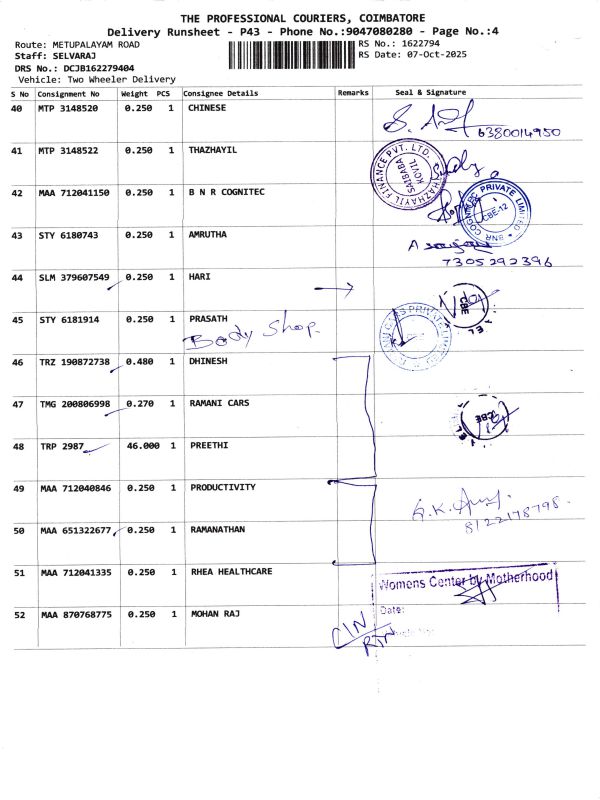 THE PROFESSIONAL COURIERS, COIMBATORE
Delivery Runsheet - P43 - Phone No.:9047080280 - Page No.:4
Route: METUPALAYAM ROAD RS No.: 1622794
Staff: SELVARAJ RS Date: 07-Oct-2025
DRS No.: DCJB162279404
Vehicle: Two Wheeler Delivery
S No Consignment No Weight PCS Consignee Details Remarks Seal & Signature
40 MTP 3148520 0.250 1 CHINESE
6380014950
41 MTP 3148522 0.250 1 THAZHAYIL
THAZHAYIL FINANCE PVT. LTD.
SAIBABA
KOVIL
42 MAA 712041150 0.250 1 B N R COGNITEC
BNR COGNITEC PRIVATE LIMITED
CBE-12
43 STY 6180743 0.250 1 AMRUTHA
7305292396
44 SLM 379607549 0.250 1 HARI
CBE
45 STY 6181914 0.250 1 PRASATH
Body Shop.
CARS PRIVATE LIMITED
46 TRZ 190872738 0.480 1 DHINESH
47 TMG 200806998 0.270 1 RAMANI CARS
CBE
48 TRP 2987 46.000 1 PREETHI
49 MAA 712040846 0.250 1 PRODUCTIVITY
8122178798.
50 MAA 651322677 0.250 1 RAMANATHAN
51 MAA 712041335 0.250 1 RHEA HEALTHCARE
Womens Center by Motherhood
Date:
52 MAA 870768775 0.250 1 MOHAN RAJ
CIN
RTN